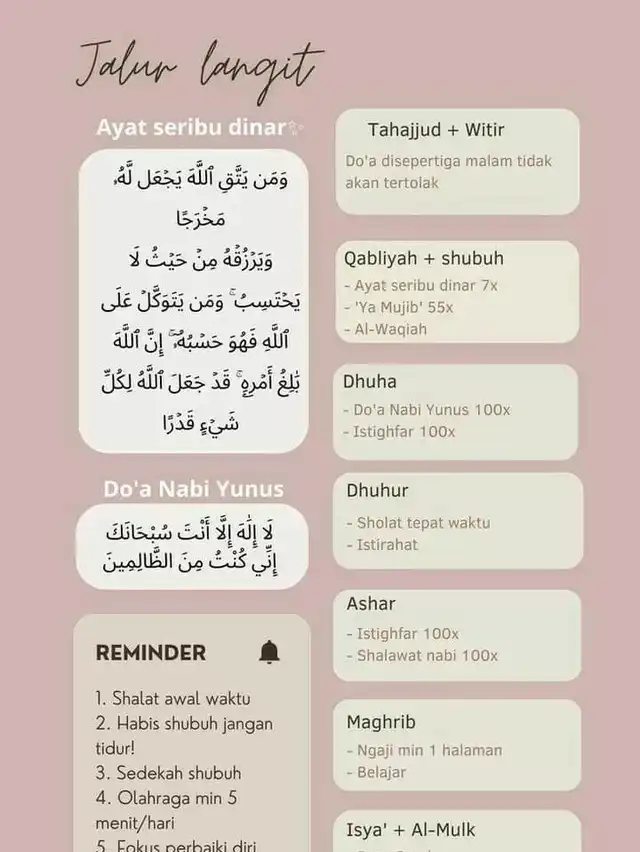 Jalur langit
Ayat seribu dinar✨
وَمَن يَتَّقِ ٱللَّهَ يَجْعَل لَّهُۥ
مَخْرَجًا
وَيَرْزُقْهُ مِنْ حَيْثُ لَا
يَحْتَسِبُ ۚ وَمَن يَتَوَكَّلْ عَلَى
ٱللَّهِ فَهُوَ حَسْبُهُۥٓ ۚ إِنَّ ٱللَّهَ
بَٰلِغُ أَمْرِهِۦ ۚ قَدْ جَعَلَ ٱللَّهُ لِكُلِّ
شَىْءٍ قَدْرًا
Do'a Nabi Yunus
لَا إِلَٰهَ إِلَّا أَنْتَ سُبْحَانَكَ
إِنِّي كُنْتُ مِنَ الظَّالِمِينَ
REMINDER
1. Shalat awal waktu
2. Habis shubuh jangan
tidur!
3. Sedekah shubuh
4. Olahraga min 5
menit/hari
5. Fokus perbaiki diri
Tahajjud + Witir
Do'a disepertiga malam tidak
akan tertolak
Qabliyah + shubuh
- Ayat seribu dinar 7x
- 'Ya Mujib' 55x
- Al-Waqiah
Dhuha
- Do'a Nabi Yunus 100x
- Istighfar 100x
Dhuhur
- Sholat tepat waktu
- Istirahat
Ashar
- Istighfar 100x
- Shalawat nabi 100x
Maghrib
- Ngaji min 1 halaman
- Belajar
Isya' + Al-Mulk